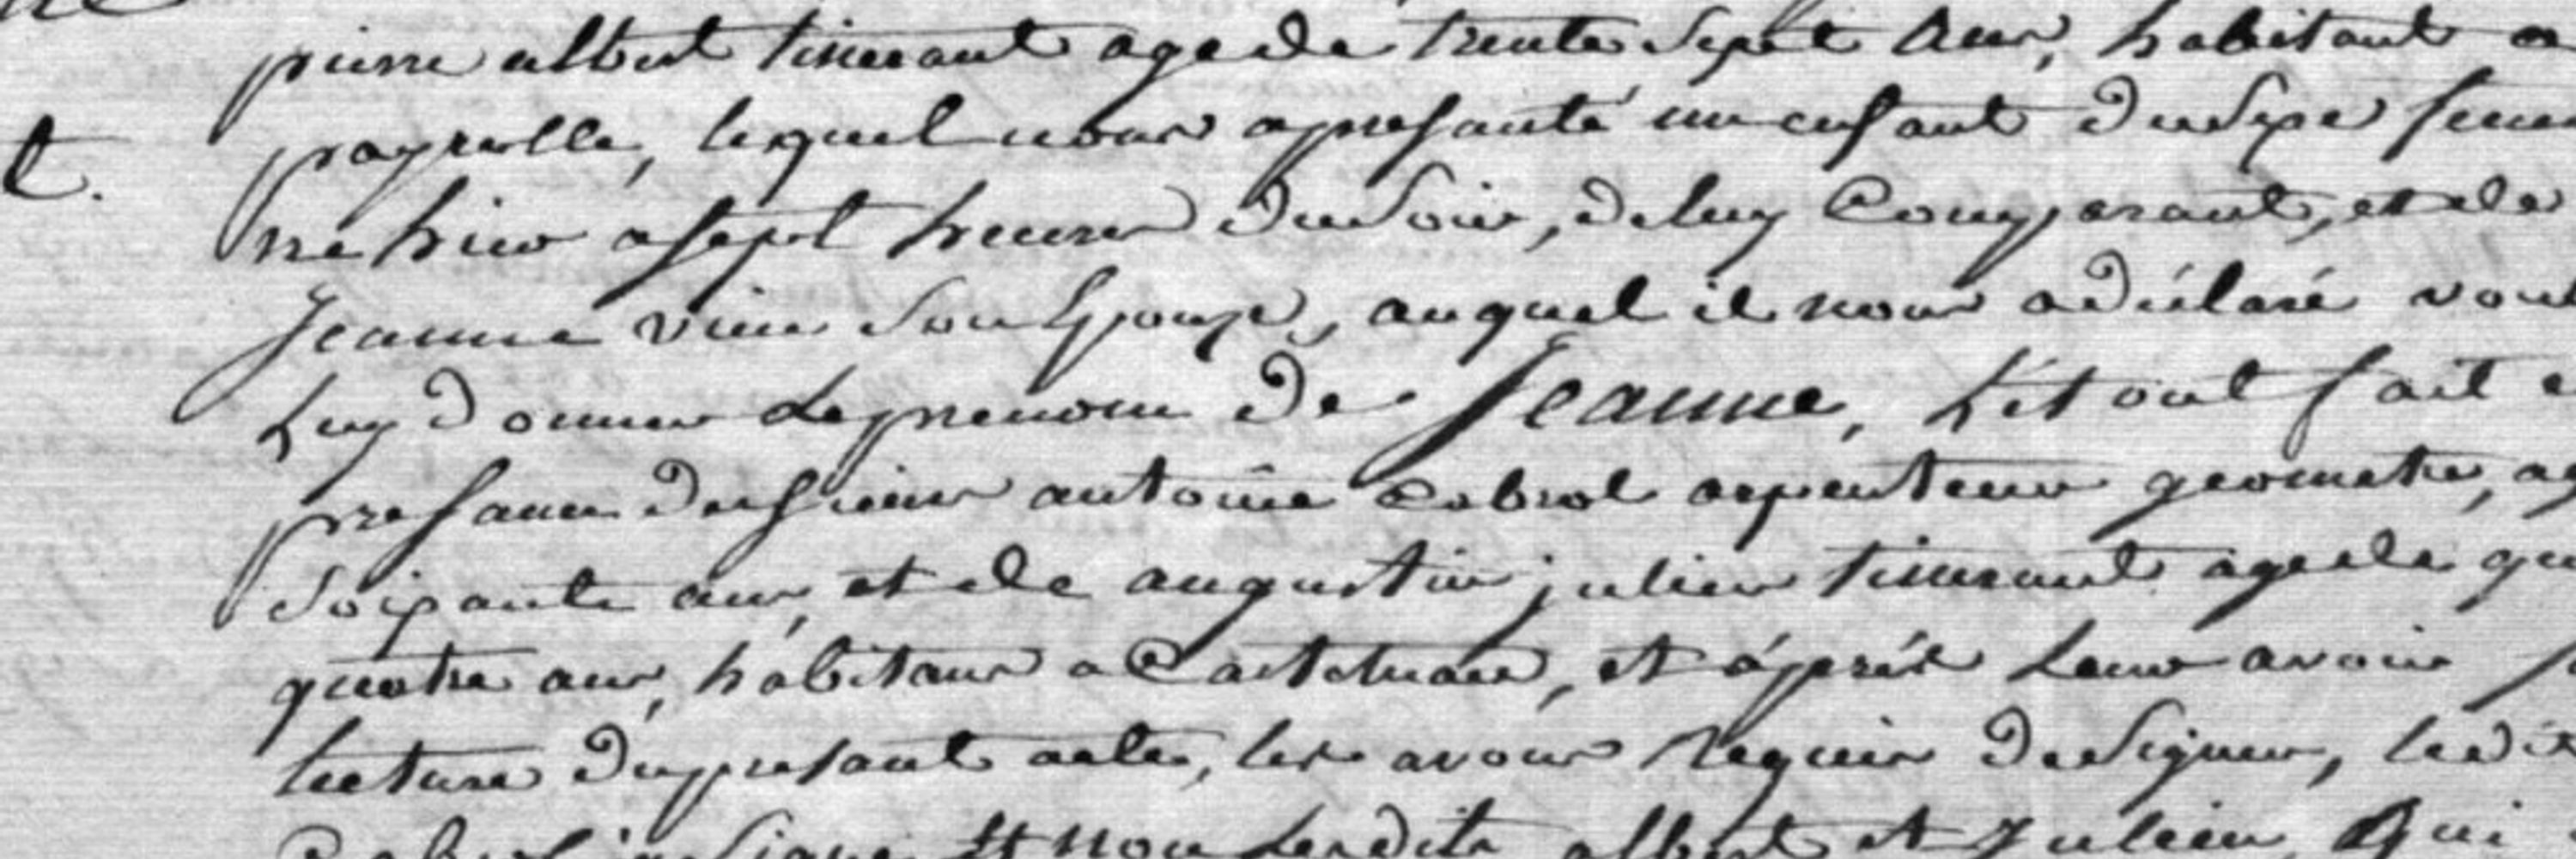 pierre albert tisserant age de trente sept ans, habitant a
payrolle, lequel nous a presanté un enfant du sexe femi
ne hier a sept heures du soir, de luy Comparant, et de
Jeanne vieu son Epouze, auquel il nous a déclaré voul
Luy donner Le prenom de Jeanne, Le tout fait e
presance des sieur antoine cabrol arpenteur geometre, ag
soixante ans, et de augustin julien tisserant age de qu
quatre ans, habitans a et aprés Leur avoir f
lecture du presant acte, les avons Requis de signer, ledit
Cabrol a signé Et non Lesdits albert et Julien, Qui